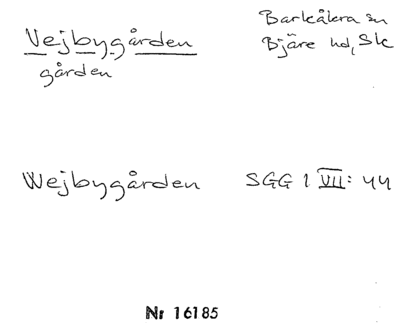 Vejbygården
gården
Barkåkra sn
Bjäre hd, Sk
Wejbygården
SGG 1 VII: 44
Nr 16185